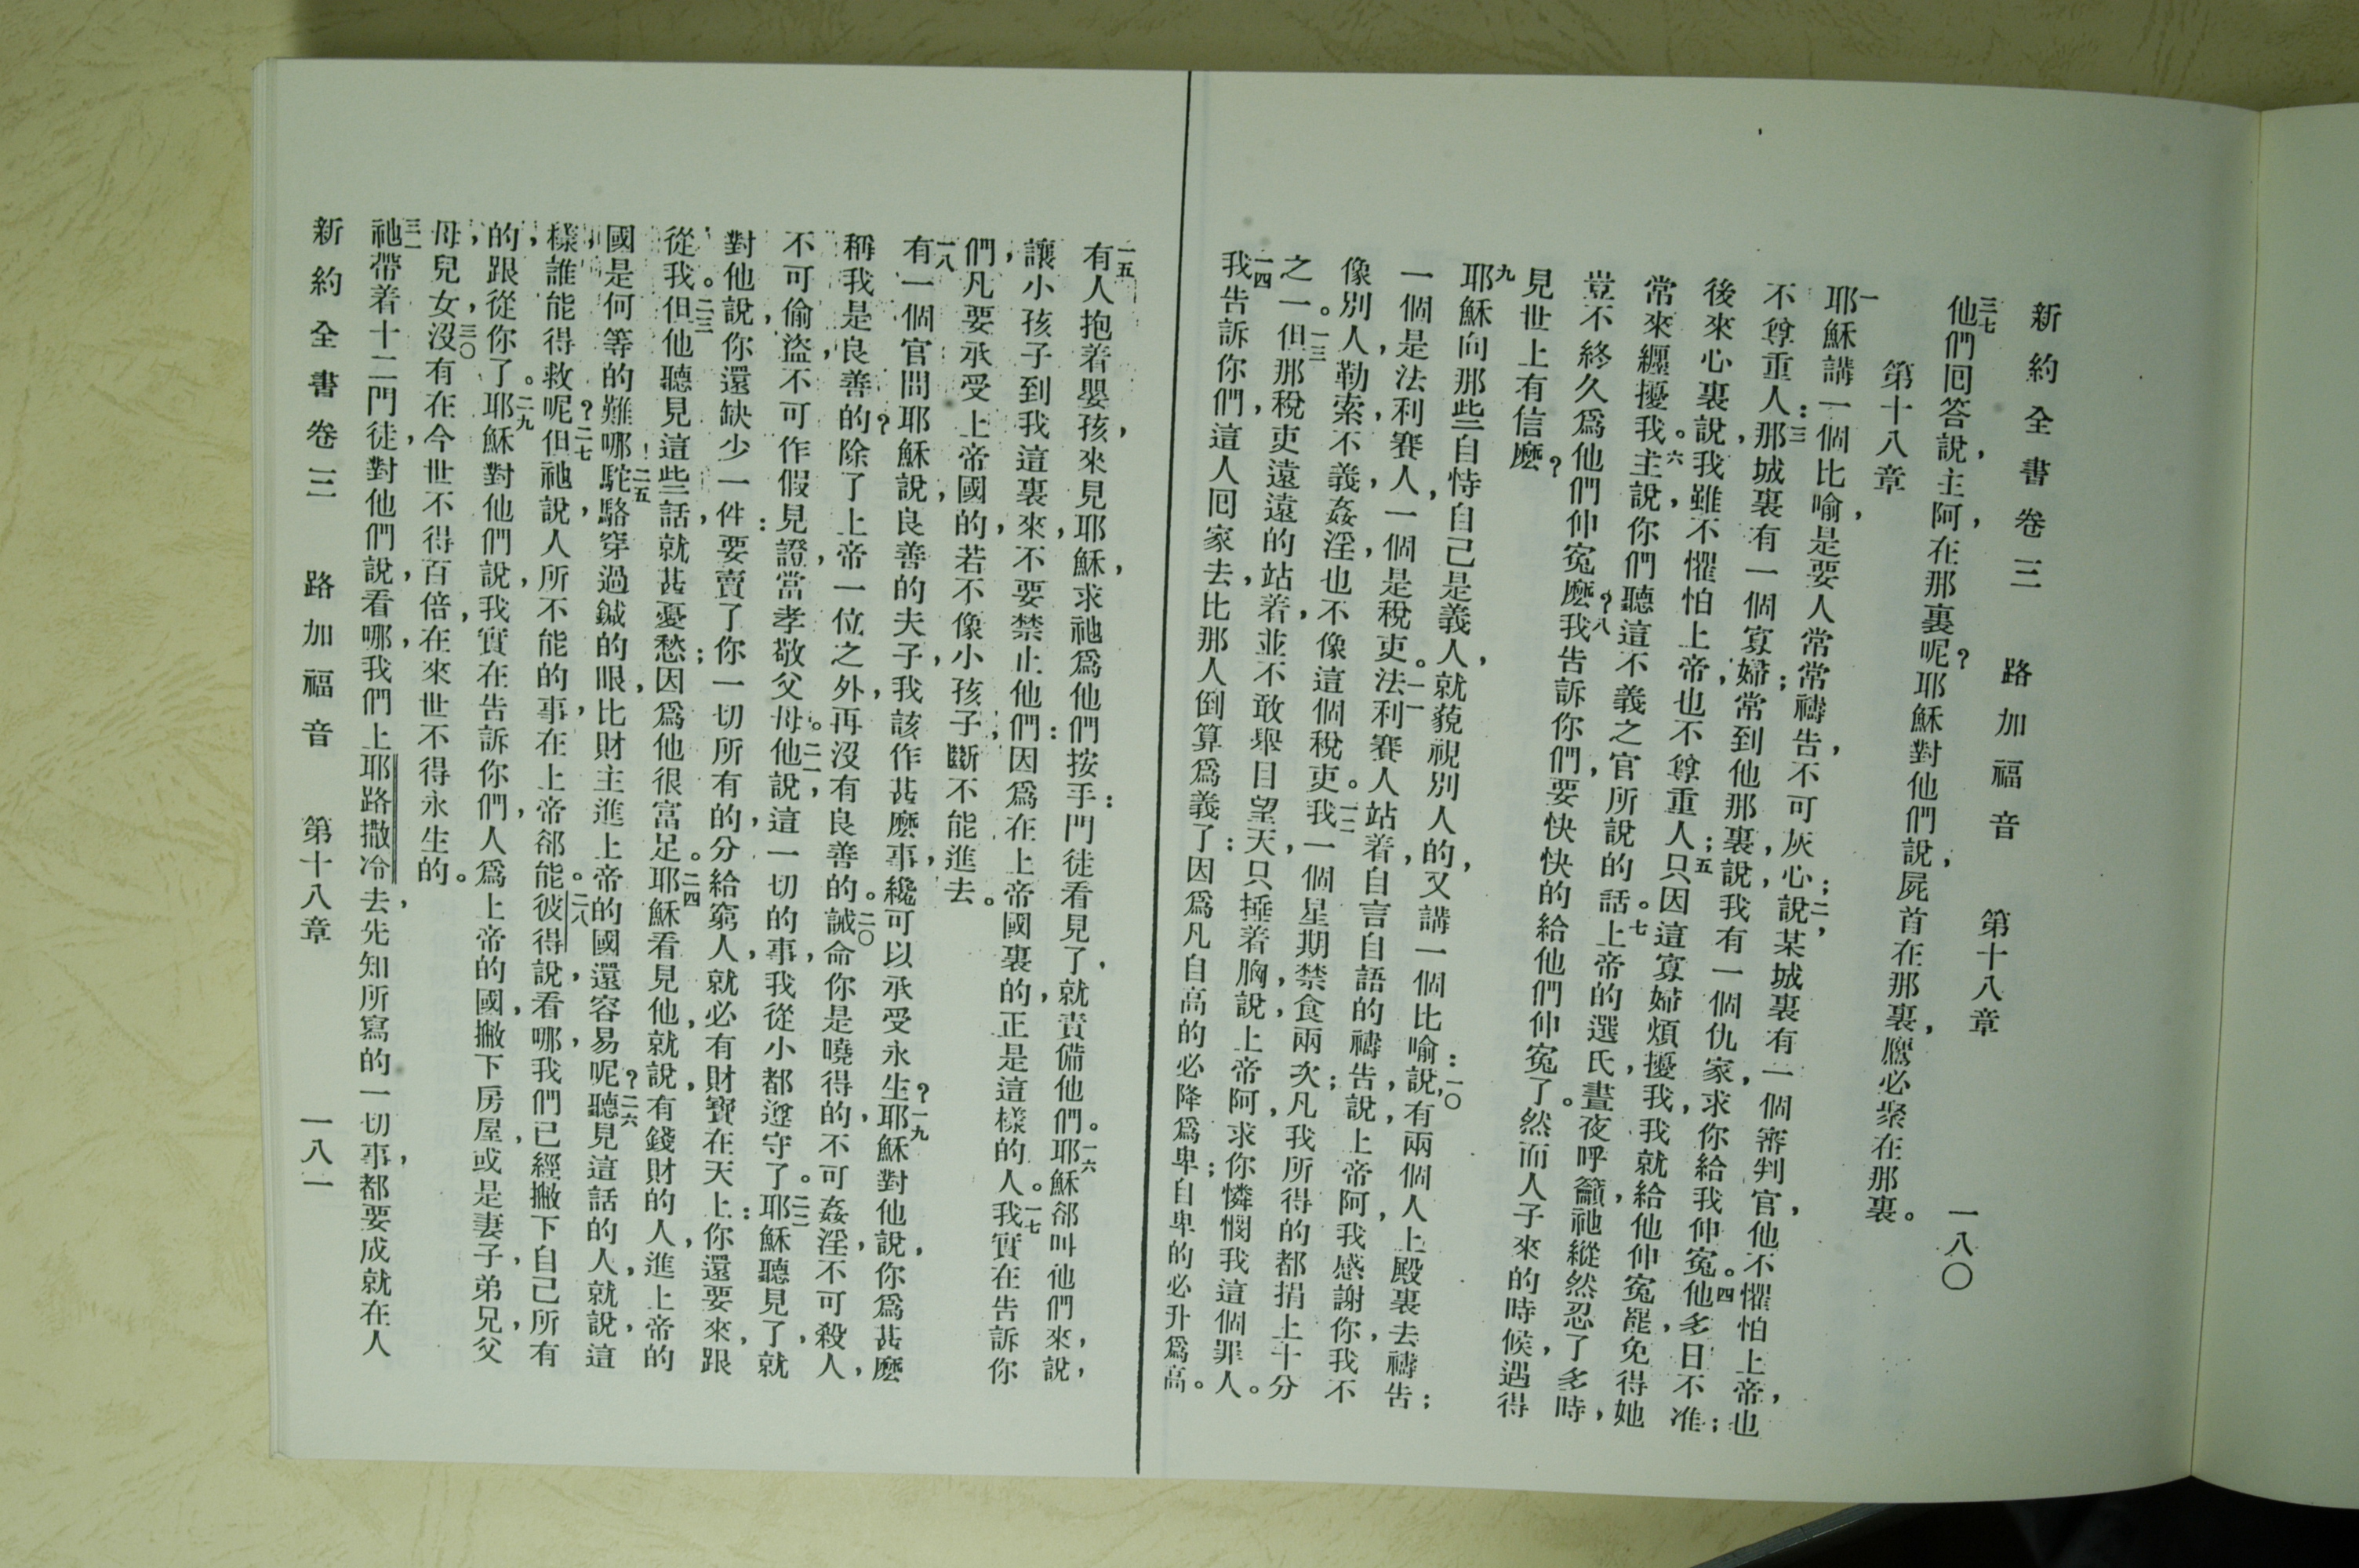 新約全書卷三　路加福音　第十八章　一八〇
三七他們回答說，主阿，在那裏呢？耶穌對他們說，屍首在那裏，鷹必聚在那裏。
第十八章
一耶穌講一個比喻，是要人常常禱告，不可灰心；二說，某城裏有一個審判官，他不懼怕上帝，也
不尊重人：三那城裏有一個寡婦；常到他那裏，說，我有一個仇家，求你給我伸冤。四他多日不准；
後來心裏說，我雖不懼怕上帝，也不尊重人；五只因這寡婦煩擾我，我就給他伸冤罷，免得她
常來纏擾我。六主說，你們聽這不義之官所說的話。七上帝的選民，晝夜呼籲祂，縱然忍了多時，
豈不終久爲他們伸冤麼？八我告訴你們，要快快的給他們伸冤了。然而人子來的時候，遇得
見世上有信麼？
九耶穌向那些自恃自己是義人，就藐視別人的，又講一個比喻：一〇說，有兩個人上殿裏去禱告；
一個是法利賽人，一個是稅吏。一一法利賽人站着，自言自語的禱告，說，上帝阿，我感謝你，我不
像別人，勒索，不義，姦淫，也不像這個稅吏。一二我一個星期，禁食兩次；凡我所得的都捐上十分
之一。一三但那稅吏遠遠的站着，並不敢舉目望天，只捶着胸，說，上帝阿，求你憐憫我這個罪人。
一四我告訴你們，這人回家去，比那人倒算爲義了：因爲凡自高的必降爲卑；自卑的必升爲高。
一五有人抱着嬰孩，來見耶穌，求祂爲他們按手：門徒看見了，就責備他們。一六耶穌郤叫他們來，說，
讓小孩子到我這裏來，不要禁止他們：因爲在上帝國裏的，正是這樣的人。一七我實在告訴你
們，凡要承受上帝國的，若不像小孩子，斷不能進去。
一八有一個官問耶穌說，良善的夫子，我該作甚麽事，纔可以承受永生？一九耶穌對他說，你爲甚麽
稱我是良善的？除了上帝一位之外，再沒有良善的。二〇誡命你是曉得的，不可姦淫，不可殺人，
不可偷盜，不可作假見證，當孝敬父母。二一他說，這一切的事，我從小都遵守了。二二耶穌聽見了，就
對他說，你還缺少一件：要賣了你一切所有的，分給窮人，就必有財寶在天上：你還要來，跟
從我。二三但他聽見這些話，就甚憂愁；因爲他很富足。二四耶穌看見他，就說，有錢財的人，進上帝的
國是何等的難哪！二五駝駱穿過鍼的眼，比財主進上帝的國還容易呢？二六聽見這話的人，就說，這
樣，誰能得救呢？二七但祂說，人所不能的事，在上帝郤能。二八彼得說，看哪，我們已經撇下自己所有
的，跟從你了。二九耶穌對他們說，我實在告訴你們，人爲上帝的國，撇下房屋，或是妻子，弟兄，父
母，兒女，三〇沒有在今世不得百倍，在來世不得永生的。
三一祂帶着十二門徒，對他們說，看哪，我們上耶路撒冷去，先知所寫的一切事，都要成就在人
新約全書卷三　路加福音　第十八章　一八一